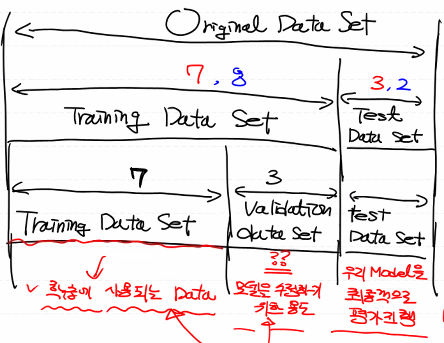 Original Data Set
7, 8
3, 2
Training Data Set
Test
Data Set
7
3
Training Data Set
Validation
data Set
test
Data Set
??
✓ 학습에 사용되는 Data
모델을 수정하기
위한 용도
우리 Model을
최종적으로
평가